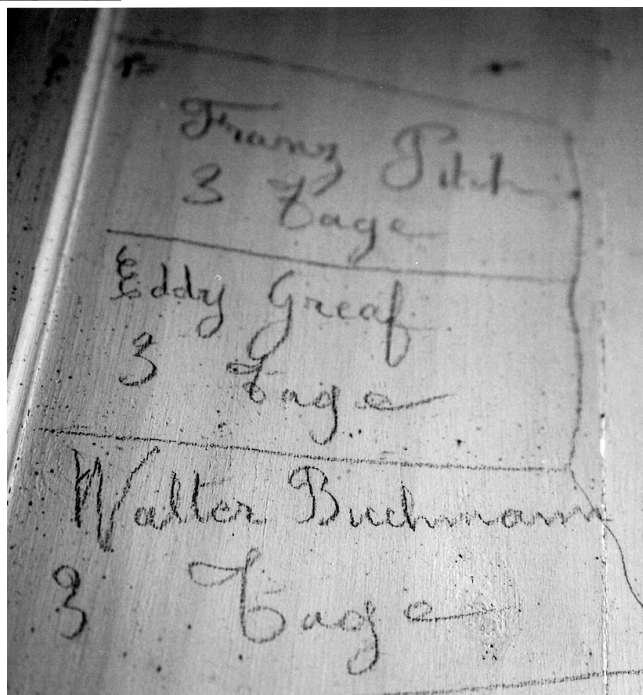 Franz Pitch
3 Tage
Eddy Greaf
3 Tage
Walter Buchmann
3 Tage